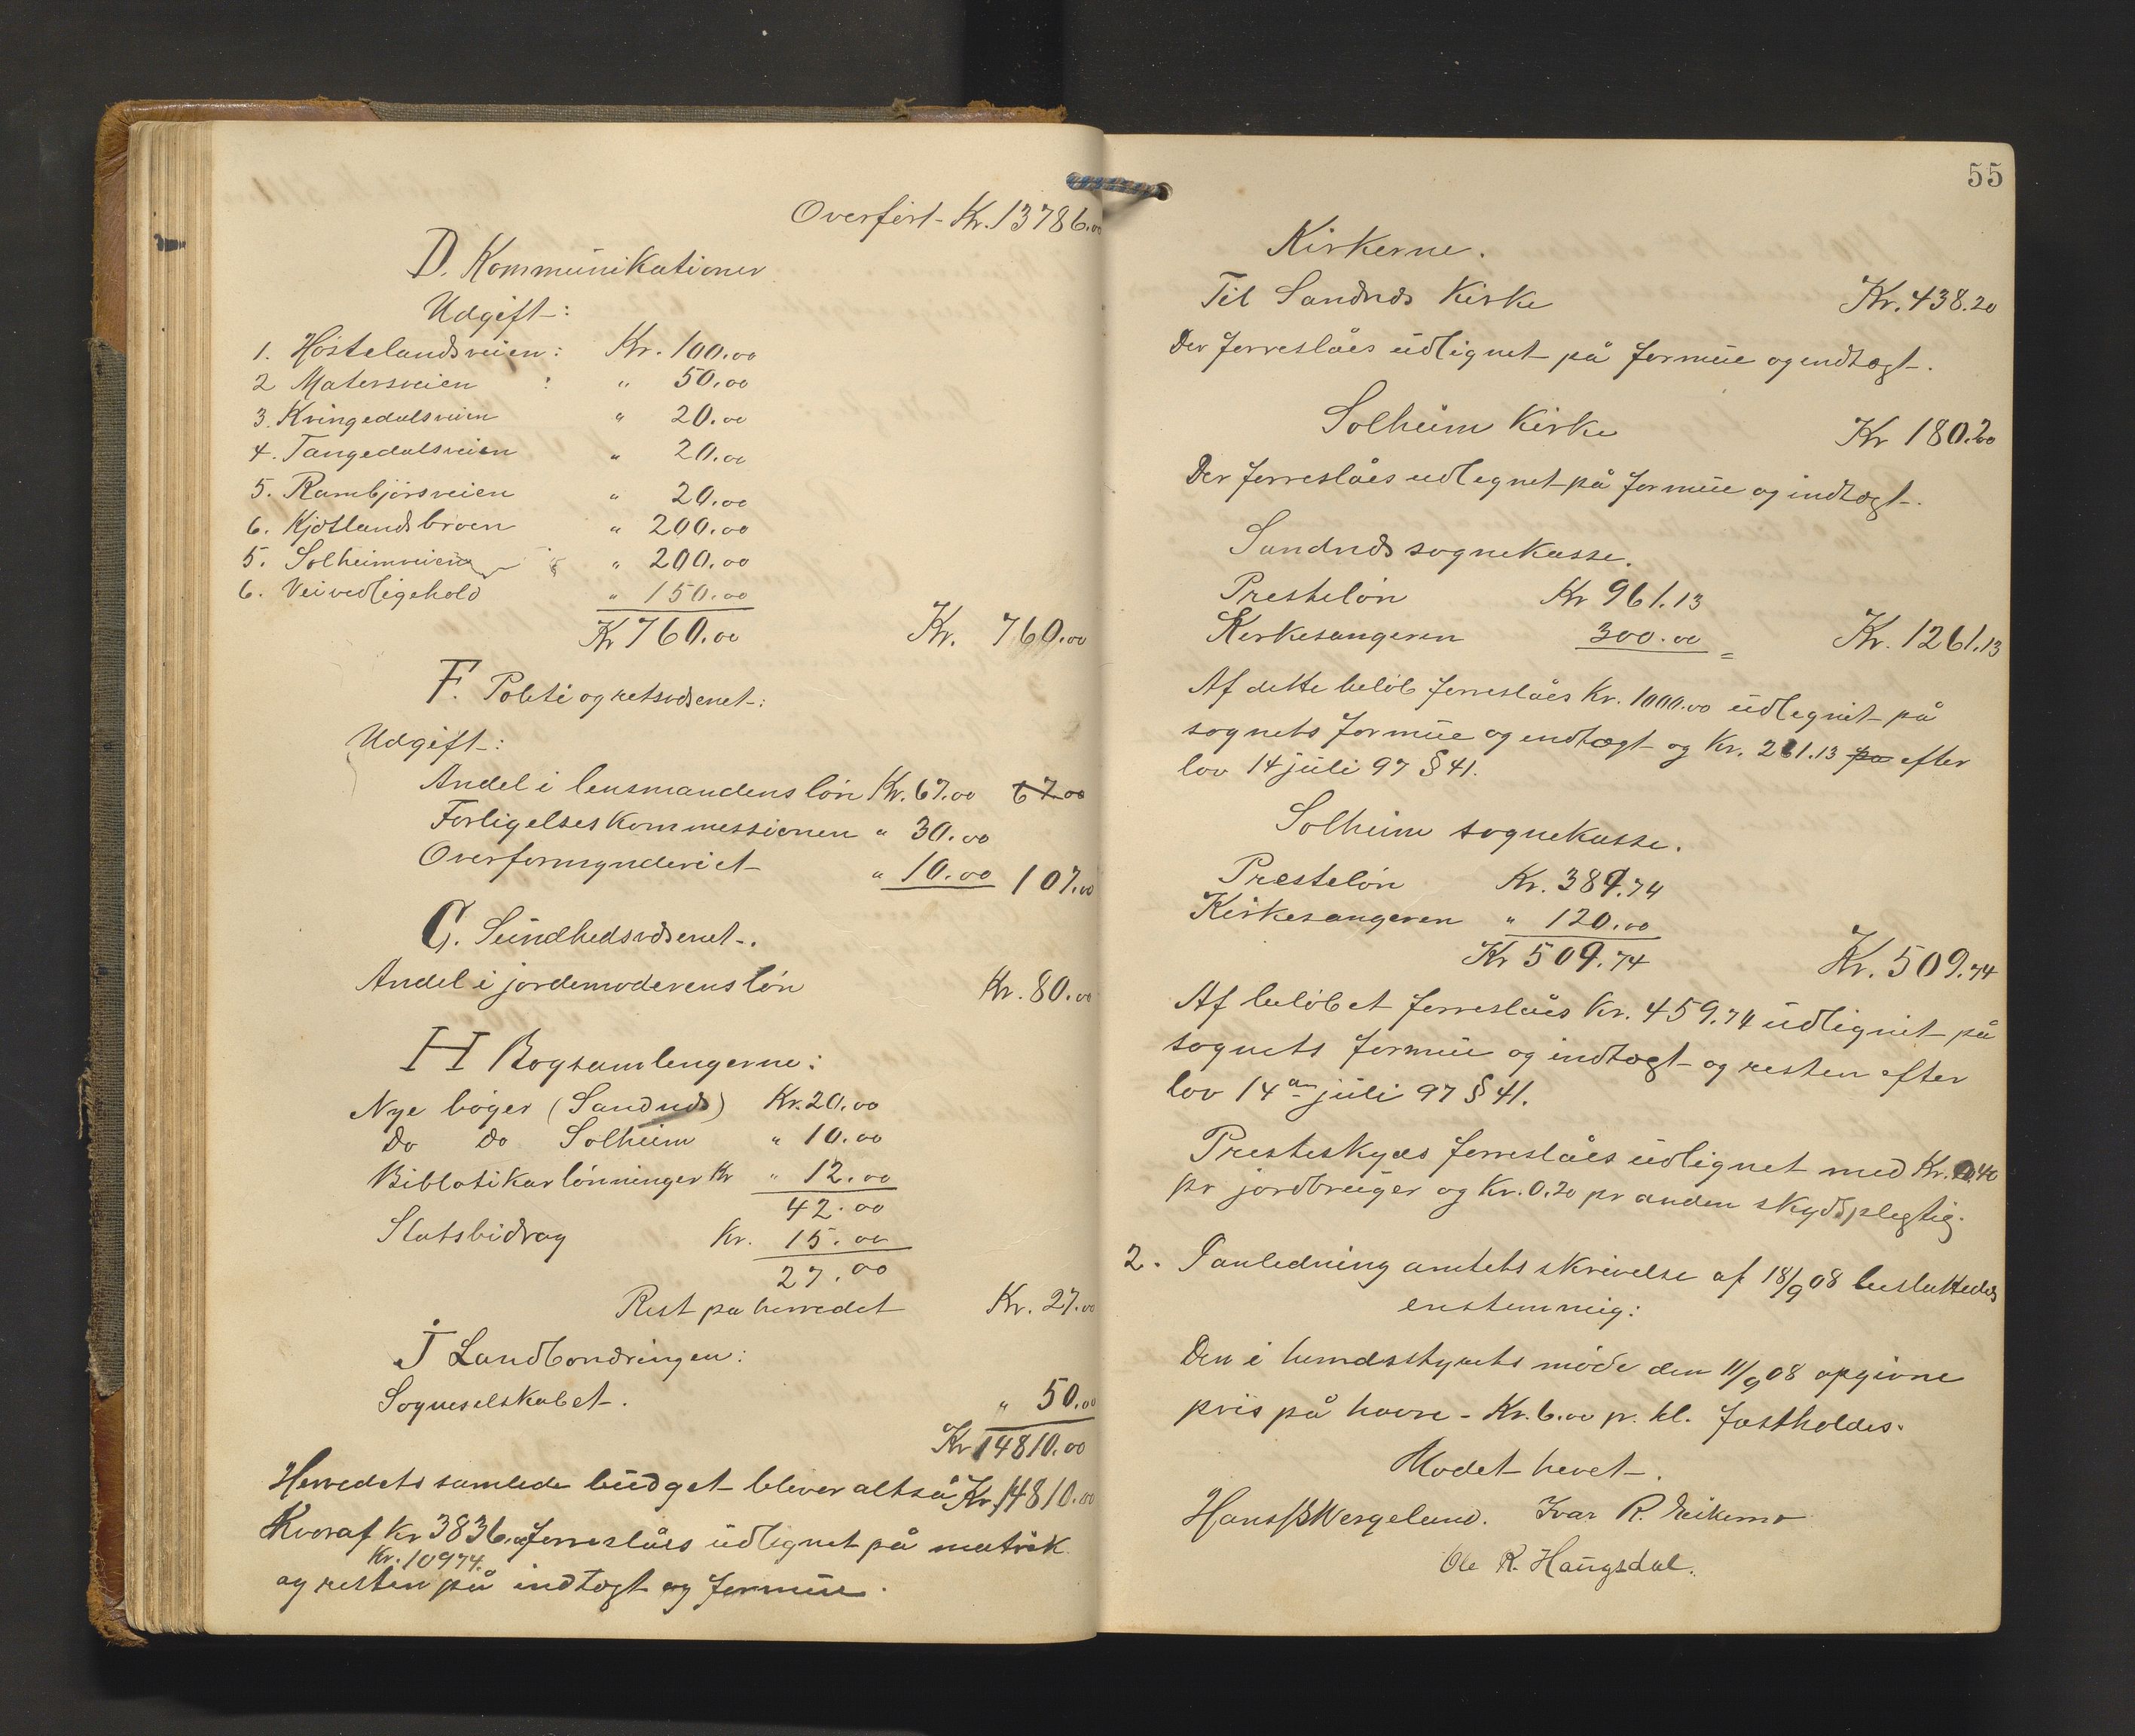 Overført Kr. 13786.00
D. Kommunikationer
Udgift:
1. Høstelandsveien: Kr. 100.00
2 Matersveien : " 50.00
3. Kringedalsveien " 20.00
4. Tangedalsveien " 20.00
5. Rambjørsveien " 20.00
6. Kjøtlandsbroen " 200.00
5. Solheimveien " 200.00
6. Veivedligehold " 150.00
Kr 760.00 Kr. 760.00
F. Politi og retsvæsenet:
Udgift:
Andel i lensmandens løn Kr. 67.00 67.00
Forligelseskommessionen " 30.00
Overformynderiet " 10.00 107.00
G. Sundhedsvæsenet.
Andel i jordemoderens løn Kr. 80.00
H Bogsamlengerne:
Nye bøger (Sandnæs) Kr. 20.00
Do Do Solheim " 10.00
Bibliotikarlønninger Kr " 12.00
42.00
Statsbidrag Kr. 15.00
27.00
Rest pa herredet Kr. 27.00
J Landbondringen:
Sogneselskabet. " 50.00
Kr 14810.00
Herredets samlede budget bliver altså Kr. 14810.00
Hvoraf Kr 3836.00 forreslåes udlignet på matrik
Kr. 10974.
og resten på indtægt og formue.
55
Kirkerne.
Til Sandnæs Kirke Kr. 438.20
Der forreslåes udlignet på formue og endtægt.
Solheim Kirke Kr 180.20
Der forreslåes udlegnet på formue og indtægt.
Sandnæs sognekasse.
Presteløn Kr 961.13
Kerkesangeren 300.00 = Kr. 1261.13
Af dette beløb forreslåes Kr. 1000.00 udlegnet på
sognets formue og endtægt og Kr. 261.13 pa efter
lov 14 juli 97 § 41.
Solheim sognekasse.
Presteløn Kr. 389.74
Kirkesangeren " 120.00
Kr 509.74 Kr. 509.74
Af beløbet forreslåes Kr. 459.74 udlignet på
sognets formue og indtægt og resten efter
lov 14de juli 97 § 41.
Presteskyds forreslåes udlignet med Kr. 0.40
pr jordbruger og Kr. 0.20 pr anden skydspligtig.
2. I anledning amtets skrivelse af 18/9 08 besluttedes
enstemmig:
Den i herredsstyrets møde den 11/9 08 opgivne
pris på havre - Kr. 6.00 pr. hl. fastholdes.
Modet hevet.
Hans B Wergeland. Ivar R. Eikemo
Ole R. Haugsdal.